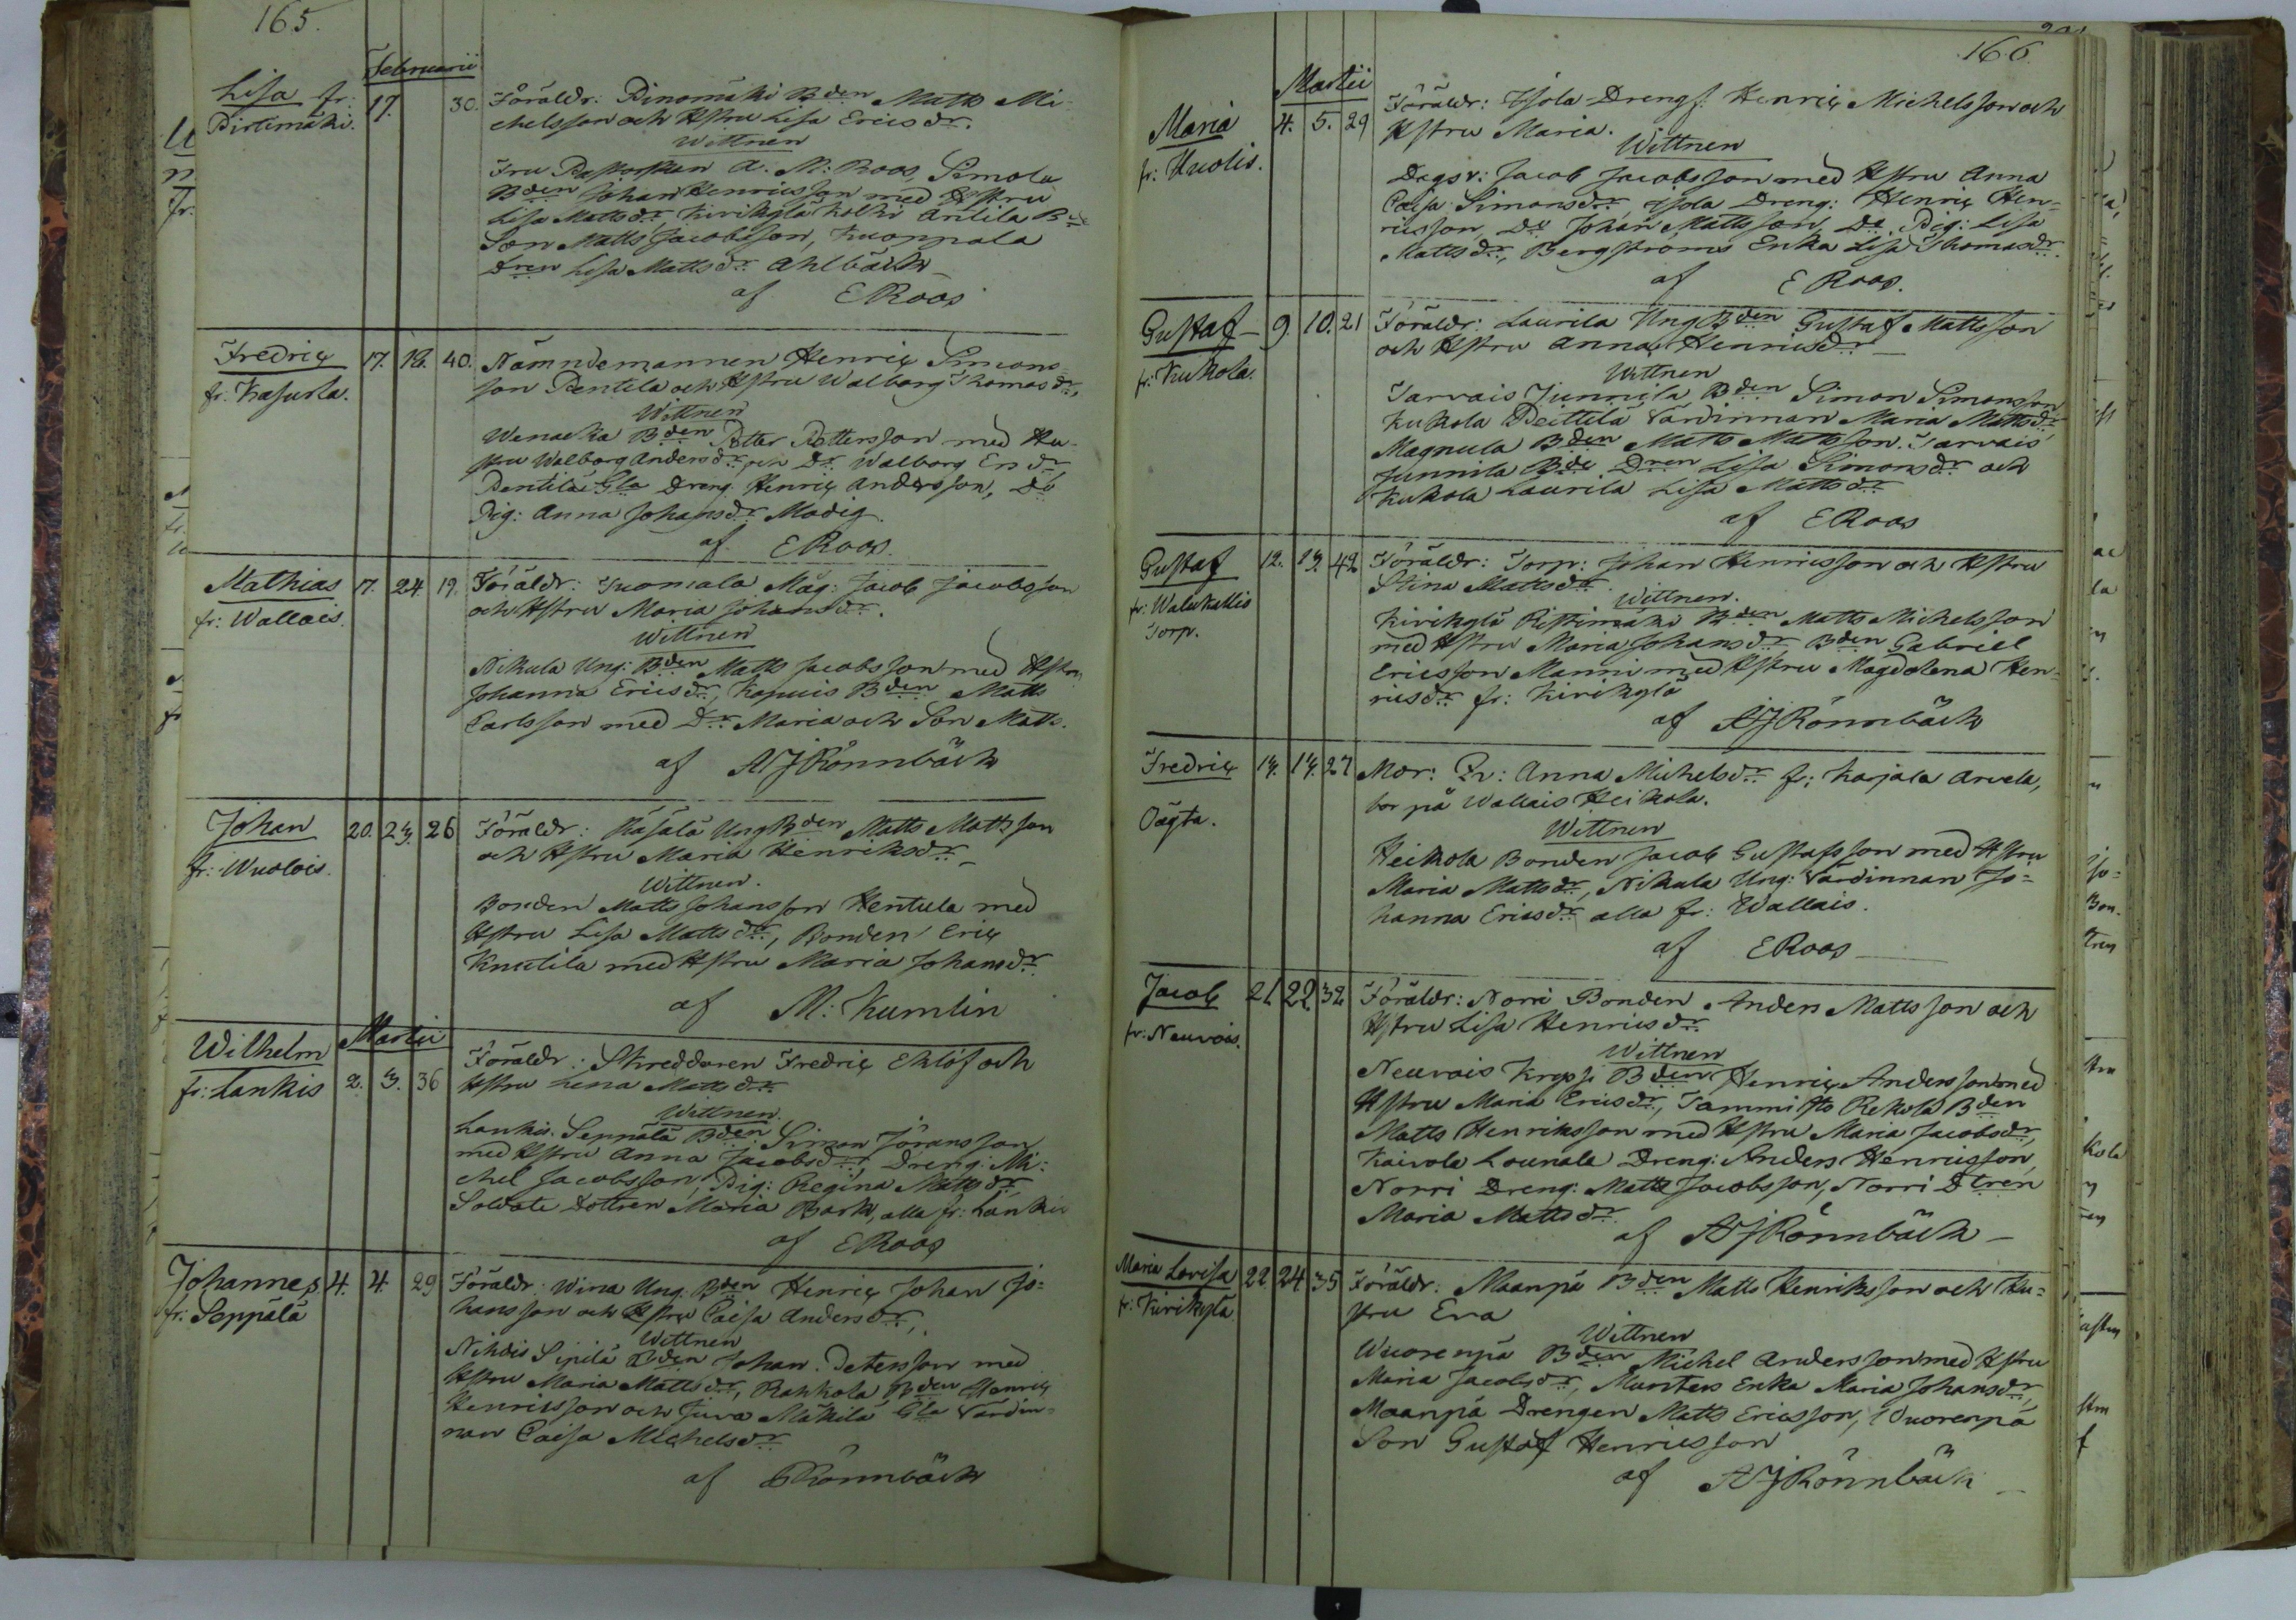 165.
Februarii
Lisa fr:
Pirtimäki.
17. 30. Föräldr: Pinomäki Bden Matts Mi-
chelsson och Hstru Lisa Ericsdr.
Wittnen
Fru Pastorskan A. M: Roos, Simola
Bden Johan Henricsson med Hstru
Lisa Mattsdr, Kirikylä Kolki Anttila Bde
Son Matts Jacobsson, Kuoppala
Dren Lisa Mattsdr Ahlbäck
af E Roos
Fredric 17. 18. 40. Nämndemannen Henric Simons-
fr: Kasurla. son Pentila och Hstru Walborg Thomasdr,
Wittnen
Wenaeka Bden Petter Pettersson med Hu-
stru Walborg Andersdr och Dr Walborg Ersdr
Pentila Gla Dreng Henric Andersson, Do
Pig: Anna Johansdr Modig.
af E Roos.
Mathias 17. 24 19. Föräldr: Tuomala Måg: Jacob Jacobsson
fr: Wallais. och Hstru Maria Johansdr.
Wittnen
Nikula Ung: Bden Matts Jacobsson med Hstru
Johanna Ericsdr, Kapuis Bden Matts
Carlsson med Dr Maria och Son Matts.
af A J Rönnbäck
Johan 20. 23. 26 Föräldr: Rasälä Ung Bden Matts Mattsson
fr: Wuolois. och Hstru Maria Henriksdr
Wittnen.
Bonden Matts Johansson Hentula med
Hstru Lisa Mattsdr, Bonden Eric
Knutila med Hstru Maria Johansdr
af M: Kumlin
Martii
Wilhelm
fr: Lankis 2. 3. 36 Föräldr: Skreddaren Fredric Eklöf och
Hstru Lena Mattsdr
Wittnen
Lankis Seppälä Bden Simon Jöransson
med Hstru Anna Jacobsdr, Dreng: Mi-
chel Jacobsson, Pig: Regina Mattsdr,
Soldate Dottren Maria Bark, alla fr: Lankis
af E Roos
Johannes 4. 4. 29 Föräldr: Wina Ung: Bden Henric Johan Jo=
fr: Seppälä hansson och Hstru Caisa Andersdr,
Wittnen
Nihdis Sipilä Bden Johan Petersson med
Hstru Maria Mattsdr, Rahkola Bden Henric
Henricsson och Juva Mäkilä Gla Värdin-
nan Caisa Michelsdr
af Rönnbäck
166.
Martii
Maria 4. 5. 29 Föräldr: Isola Drengs. Henric Michelsson och
fr: Huolis. Hstru Maria.
Wittnen
Dagsv: Jacob Jacobsson med Hstru Anna
Caisa Simonsdr, Isola Dreng: Henric Hen=
ricsson, Do Johan Mattsson, Do Pig: Lisa
Mattsdr, Bergströms Enka Lisa Thomasdr.
af E Roos.
Gustaf 9. 10. 21 Föräldr: Laurila Ung Bden Gustaf Mattsson
fr: Kukola. och Hstru Anna Henricsdr
Wittnen
Tarvais Junnila Bden Simon Simonsson
Kukola Peittilä Värdinnan Maria Mattsdr
Magnula Bden Matts Mattsson. Tarvais
Junnila Bde Dren Lisa Simonsdr och
Kukola Laurila Lisa Mattsdr
af E Roos
Gustaf 12. 13. 42 Föräldr: Torp: Johan Henricsson och Hstru
fr: Walukallis
Torp.
Stina Mattsdr
Wittnen.
Kirikylä Ristimäki Bden Matts Michelsson
med Hstru Maria Johansdr Bden Gabriel
Ericsson Manni med Hstru Magdalena Hen=
ricsdr fr: Kirikylä
af A J Rönnbäck
Fredric 14. 14. 27 Mor: Qv: Anna Michelsdr fr: Karjala Arvela,
Oägta. bor på Wallais Heikola.
Wittnen
Heikola Bonden Jacob Gustafsson med Hstru
Maria Mattsdr, Nikula Ung: Värdinnan Jo=
hanna Ericsdr alla fr: Wallais.
af E Roos
Jacob 21 22 32 Föräldr: Norri Bonden Anders Mattsson och
fr: Neuvois. Hstru Lisa Henricsdr
Wittnen
Neuvois Kropsi Bden Henric Andersson med
Hstru Maria Ericsdr, Tammisto Rekola Bden
Matts Henriksson med Hstru Maria Jacobsdr,
Kaivola Lounala Dreng: Anders Henricsson,
Norri Dreng: Matts Jacobsson, Norri Dtren
Maria Mattsdr
af A J Rönnbäck
Maria Lovisa 22 24 35 Föräldr: Maanpä Bden Matts Henriksson och Hu=
fr: Kirikylä. stru Eva
Wittnen
Wuorenpä Bden Michel Andersson med Hstru
Maria Jacobsdr, Munters Enka Maria Johansdr,
Maanpä Drengen Matts Ericsson, Wuorenpä
Son Gustaf Henricsson
af A J Rönnbäck